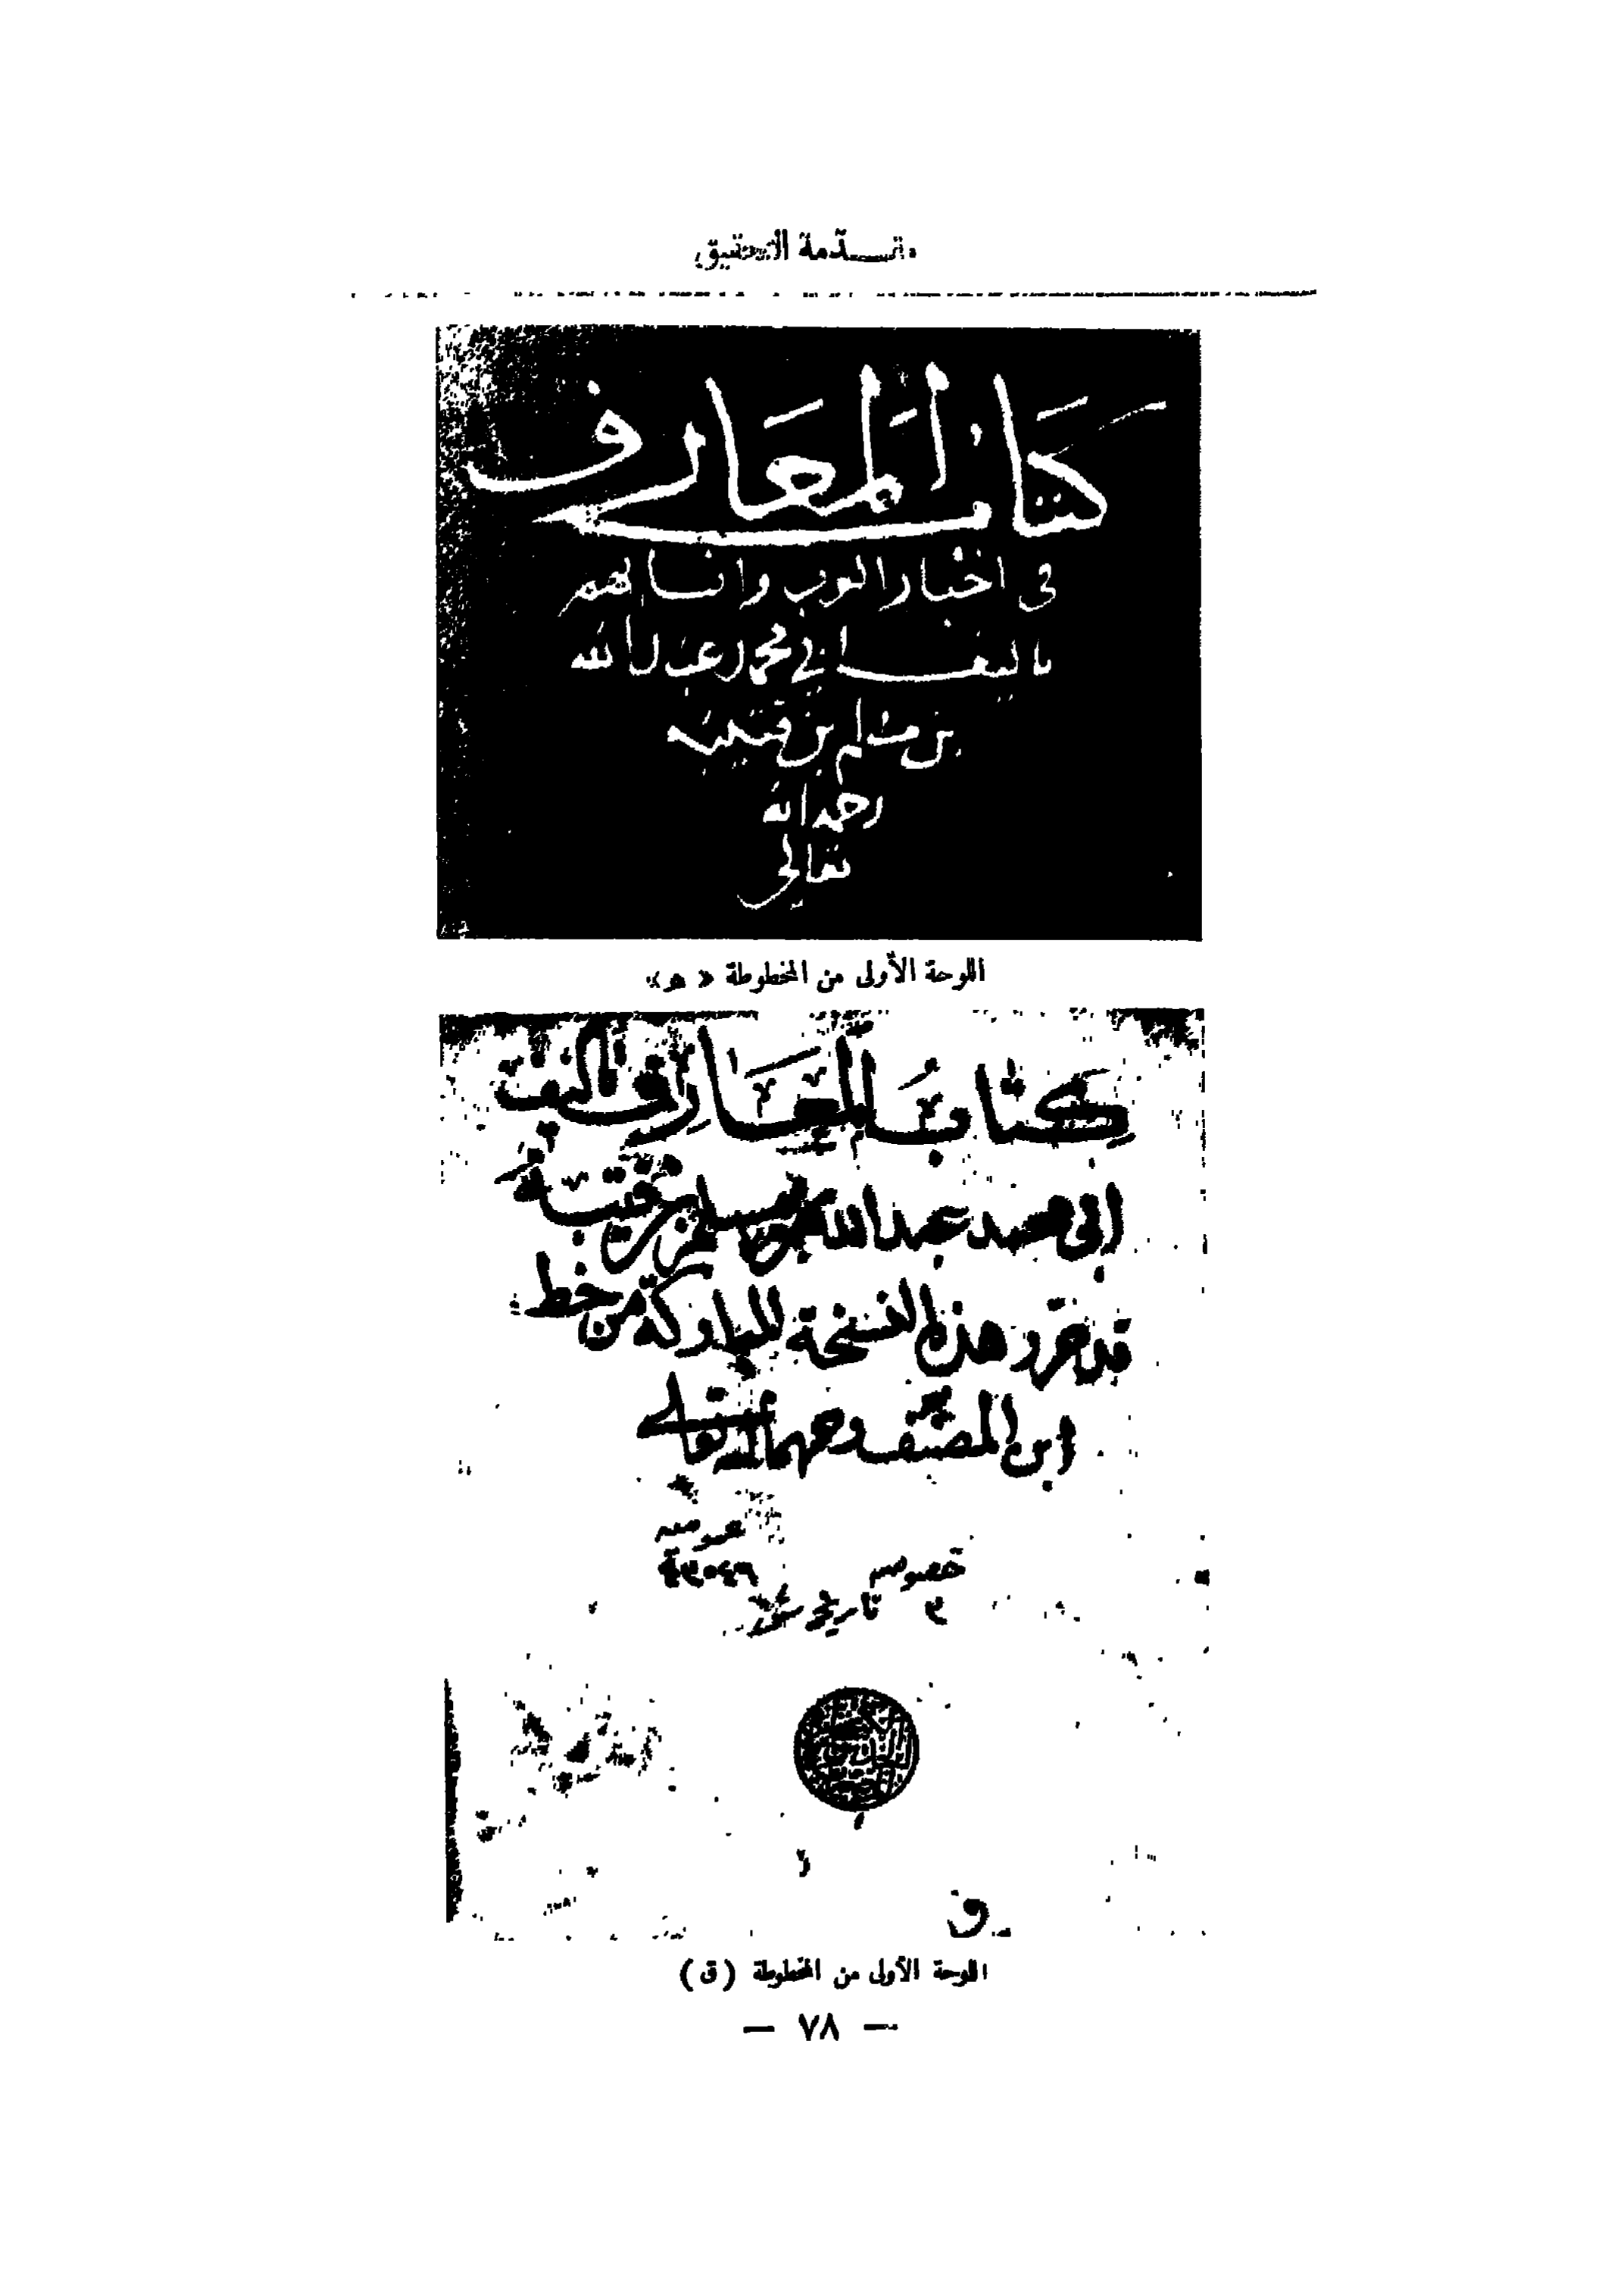 مقـــدّمة التحقيق
كتاب المعارف
فى اخبار العرب وانسابهم
تاليف ابي محمد عبد الله
بن مسلم بن قتيبه
رحمه الله
تعالى
اللوحة الأولى من المخطوطة « هـ »
كتاب المعارف تاليف
ابى محمد عبد الله بن مسلم بن قتيبة
قد حرر هذه النسخة المباركة من خط
ابن المصنف رحمهما الله تعالى
خصوصه عموميه
٣ تاريخ ٤٣٥٤٦
ق
اللوحة الأولى من المخطوطة (ق)
— ٧٨ —